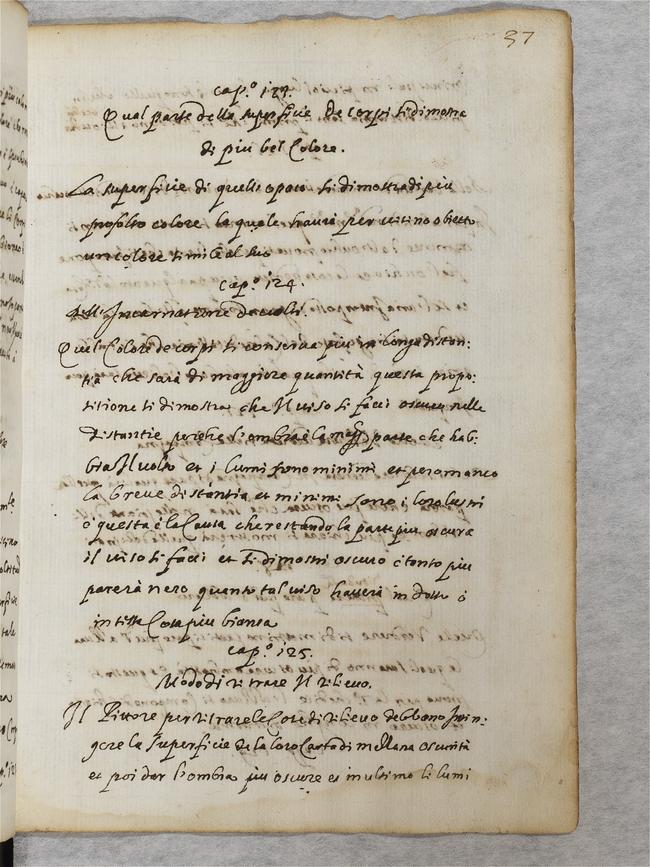 37
cap.º 123.
Qual parte della superficie de corpi si dimostra
di piu bel Colore.
La superficie di quello opaco si dimostra di piu
perfetto colore la quale haura per vicino obietto
un colore simile al suo
cap.º 124.
dell'Incarnatione de uolti.
Quel Colore de corpi si conserua piu in longa distan:
tia che sarà di maggiore quantità questa propo:
sitione ti dimostra che Il uiso si facci oscuro nelle
distantie perche l'ombra è la magg. parte che hab:
bia Il uolto et i lumi sono minimi et pero manco
la breue distantia et minimi sono i loro lustri
e questa è la Causa che restando la parte piu oscura
il uiso si facci et si dimostri oscuro e tanto piu
parerà nero quanto tal uiso hauerà in dosso o
in testa Cosa piu bianca
cap.º 125.
Modo di ritrare Il rileuo.
Il Pittore per ritrare le Cose di rileuo debbono Tin:
gere la Superficie de la loro Carta di mezzana oscurità
et poi dar l'ombra piu oscure et in ultimo li lumi